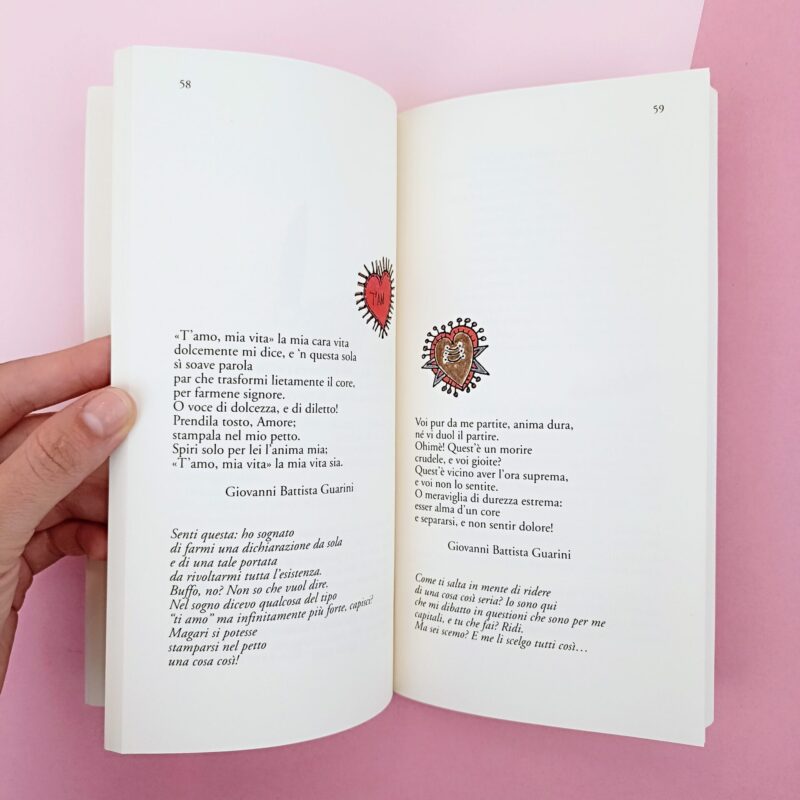 58
T'AM
«T'amo, mia vita» la mia cara vita
dolcemente mi dice, e 'n questa sola
sì soave parola
par che trasformi lietamente il core,
per farmene signore.
O voce di dolcezza, e di diletto!
Prendila tosto, Amore;
stampala nel mio petto.
Spiri solo per lei l'anima mia;
«T'amo, mia vita» la mia vita sia.
Giovanni Battista Guarini
Senti questa: ho sognato
di farmi una dichiarazione da sola
e di una tale portata
da rivoltarmi tutta l'esistenza.
Buffo, no? Non so che vuol dire.
Nel sogno dicevo qualcosa del tipo
“ti amo” ma infinitamente più forte, capisci?
Magari si potesse
stamparsi nel petto
una cosa così!
59
Voi pur da me partite, anima dura,
né vi duol il partire.
Ohimè! Quest'è un morire
crudele, e voi gioite?
Quest'è vicino aver l'ora suprema,
e voi non lo sentite.
O meraviglia di durezza estrema:
esser alma d'un core
e separarsi, e non sentir dolore!
Giovanni Battista Guarini
Come ti salta in mente di ridere
di una cosa così seria? Io sono qui
che mi dibatto in questioni che sono per me
capitali, e tu che fai? Ridi.
Ma sei scemo? E me li scelgo tutti così…